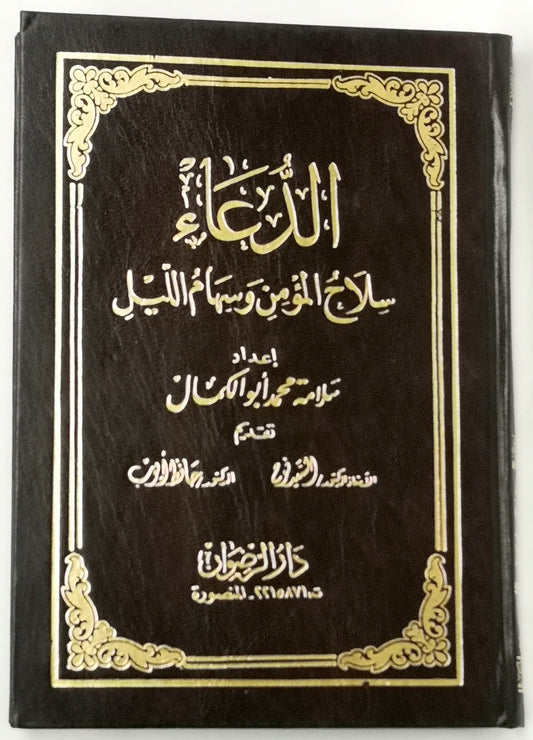 الدُّعَاءُ
سِلَاحُ المُؤْمِنِ وَسِهَامُ اللَّيْلِ
إعداد
سلامة محمد أبو الكمال
تقديم
الأستاذ الدكتور/ الدكتور/
دَارُ الرِّضْوَان
ت: ٢٢١٥٨٧١ - المنصورة